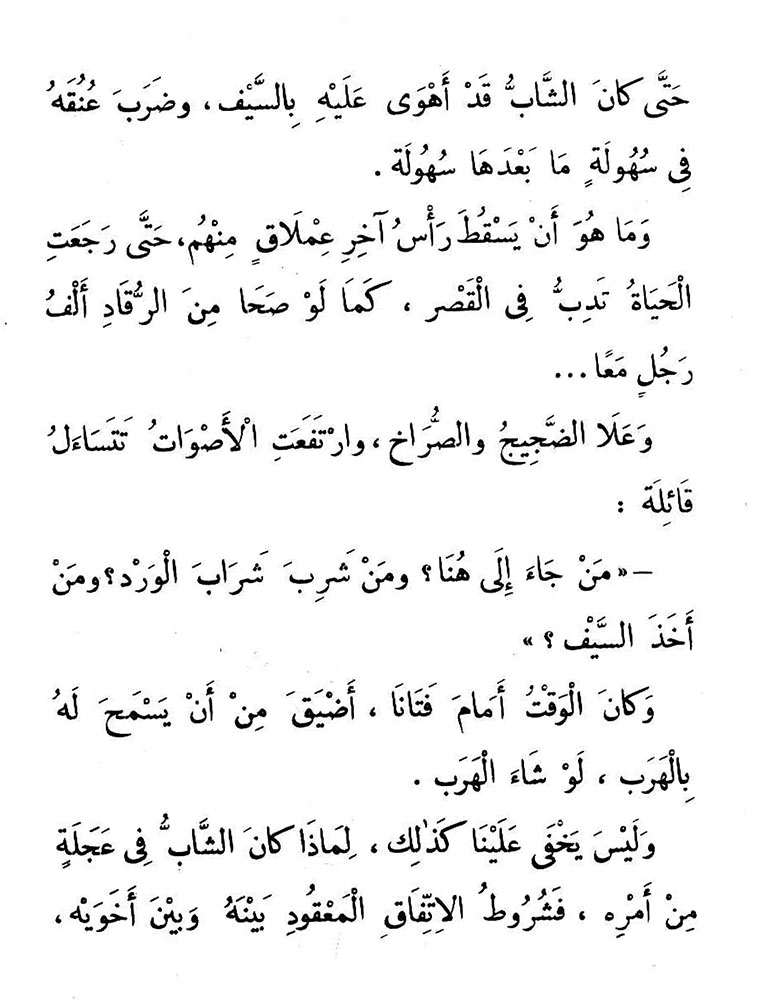 حَتَّى كانَ الشَّابُّ قَدْ أَهْوَى عَلَيْهِ بِالسَّيْف ، وضَرَبَ عُنُقَهُ
فِى سُهُولَةٍ مَا بَعْدَهَا سُهُولَة .
وَمَا هُوَ أَنْ يَسْقُطَ رَأْسُ آخِرِ عِمْلَاقٍ مِنْهُم، حَتَّى رَجَعَتِ
الْحَيَاةُ تَدِبُّ فِى الْقَصْر ، كَمَا لَوْ صَحَا مِنَ الرُّقَادِ أَلْفُ
رَجُلٍ مَعًا...
وَعَلَا الضَّجِيجُ والصُّرَاخ ، وارْتَفَعَتِ الْأَصْوَاتُ تَتَسَاءَلُ
قَائِلَة :
– «مَنْ جَاءَ إِلَى هُنَا؟ ومَنْ شَرِبَ شَرَابَ الْوَرْد؟ ومَنْ
أَخَذَ السَّيْف ؟ »
وَكانَ الْوَقْتُ أَمَامَ فَتَانَا ، أَضْيَقَ مِنْ أَنْ يَسْمَحَ لَهُ
بِالْهَرَب ، لَوْ شَاءَ الْهَرَب .
وَلَيْسَ يَخْفَى عَلَيْنَا كَذٰلِك ، لِمَاذَا كانَ الشَّابُّ فِى عَجَلَةٍ
مِنْ أَمْرِه ، فَشُرُوطُ الاِتِّفَاقِ الْمَعْقُودِ بَيْنَهُ وَبَيْنَ أَخَوَيْه ،